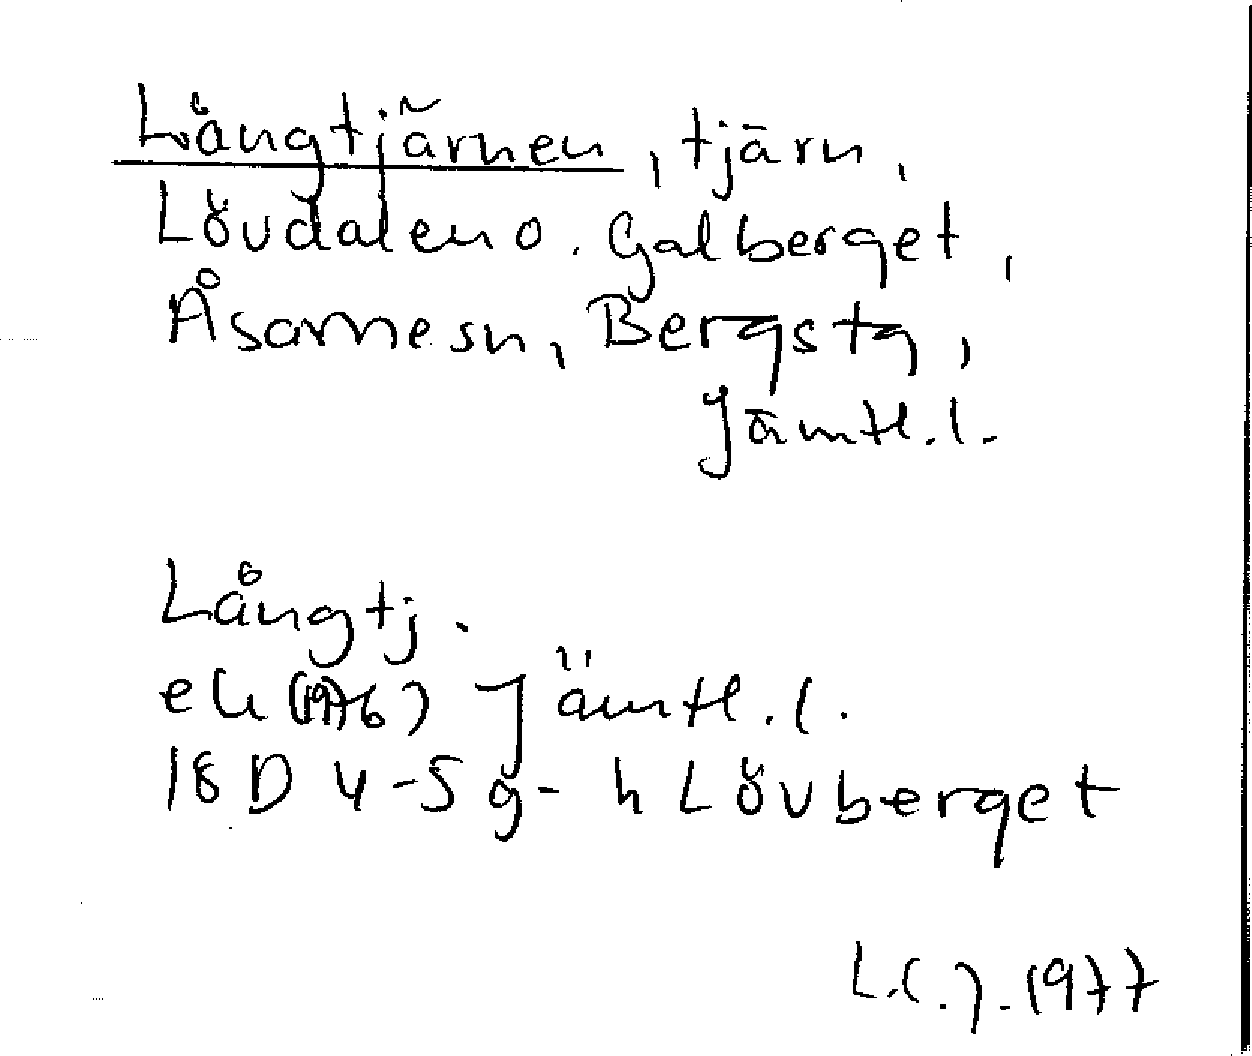 Långtjärnen, tjärn,
Lövdalen o. Galberget,
Åsarne sn, Bergs tg,
Jämtl. l.
Långtj.
ek (1976) Jämtl. l.
18 D 4-5 g-h Lövberget
L.C.J. 1977